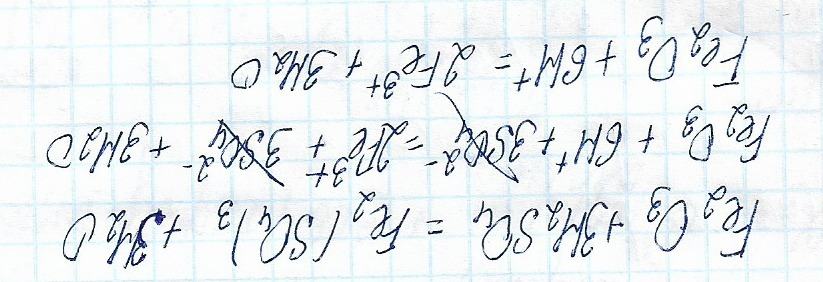 Fe₂O₃ + 3H₂SO₄ = Fe₂(SO₄)₃ + 3H₂O
Fe₂O₃ + 6H⁺ + 3SO₄²⁻ = 2Fe³⁺ + 3SO₄²⁻ + 3H₂O
Fe₂O₃ + 6H⁺ = 2Fe³⁺ + 3H₂O